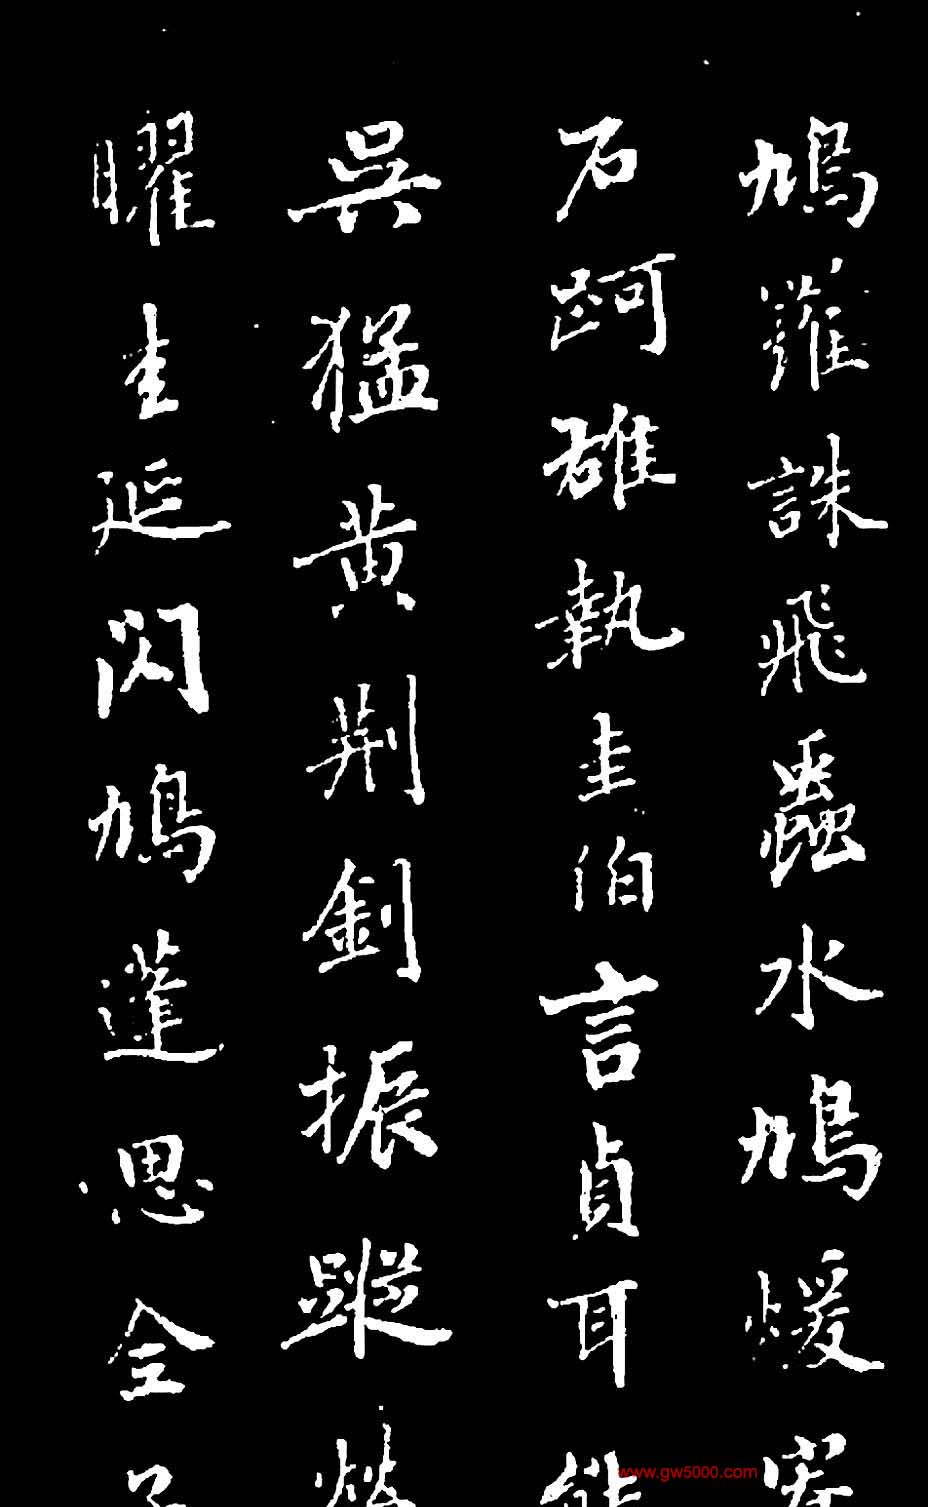 鳩羅誅飛蟲水鳩煖
石訶雄執圭伯言貞耳
吳猛黃荆釗振蹤
曜生延閃鳩蓮思全
www.gw5000.com